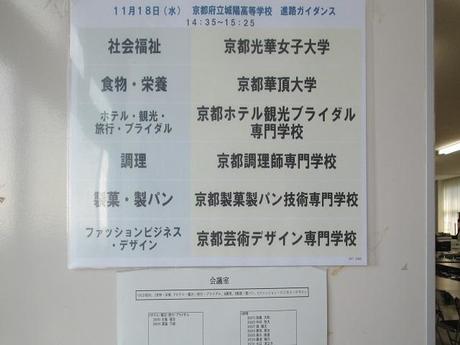 11月18日（水）　京都府立城陽高等学校　進路ガイダンス
14:35～15:25
社会福祉　京都光華女子大学
食物・栄養　京都華頂大学
ホテル・観光・
旅行・ブライダル　京都ホテル観光ブライダル
専門学校
調理　京都調理師専門学校
製菓・製パン　京都製菓製パン技術専門学校
ファッションビジネス
・デザイン　京都芸術デザイン専門学校
会議室